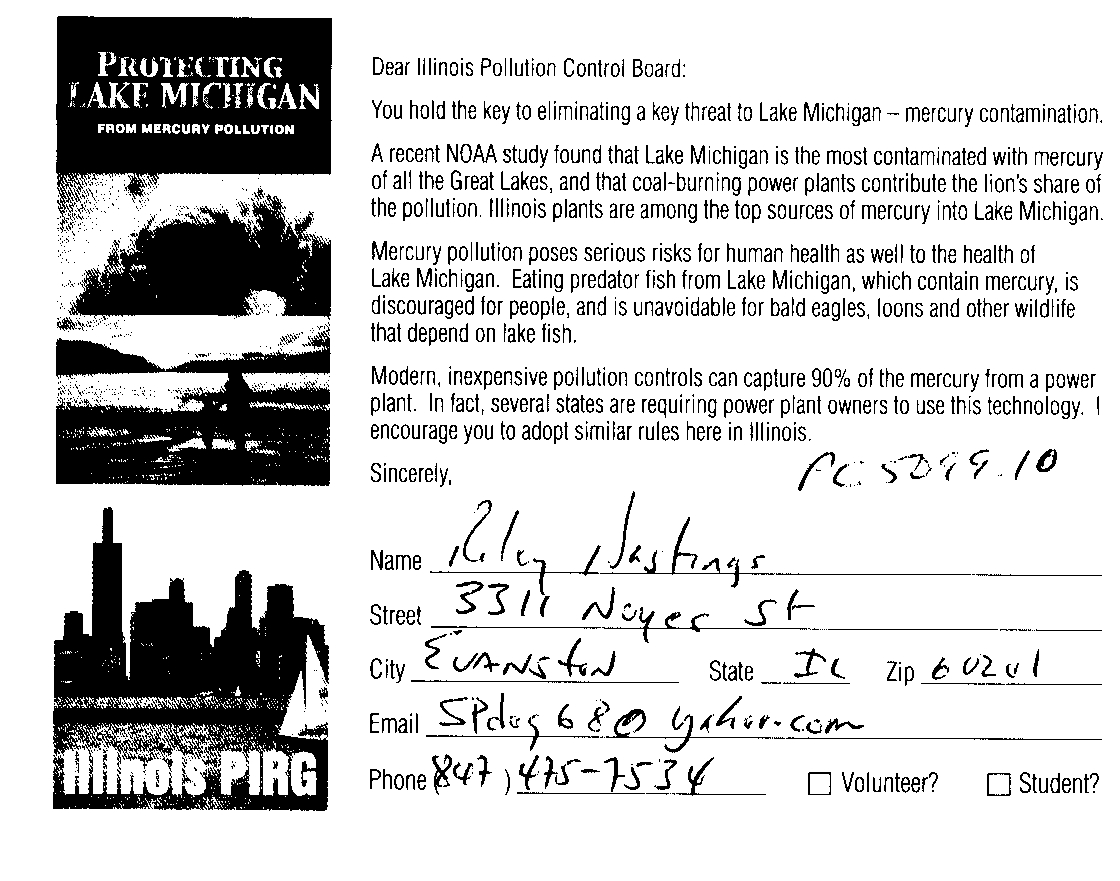 PROTECTING
LAKE MICHIGAN
FROM MERCURY POLLUTION
Illinois PIRG
Dear Illinois Pollution Control Board:
You hold the key to eliminating a key threat to Lake Michigan – mercury contamination.
A recent NOAA study found that Lake Michigan is the most contaminated with mercury
of all the Great Lakes, and that coal-burning power plants contribute the lion's share of
the pollution. Illinois plants are among the top sources of mercury into Lake Michigan.
Mercury pollution poses serious risks for human health as well to the health of
Lake Michigan. Eating predator fish from Lake Michigan, which contain mercury, is
discouraged for people, and is unavoidable for bald eagles, loons and other wildlife
that depend on lake fish.
Modern, inexpensive pollution controls can capture 90% of the mercury from a power
plant. In fact, several states are requiring power plant owners to use this technology. I
encourage you to adopt similar rules here in Illinois.
Sincerely,
PC 5099.10
Name Riley Hastings
Street 3311 Noyes St
City EVANSTON State IL Zip 60201
Email SPdog68@yahoo.com
Phone (847) 475-7534 Volunteer? Student?